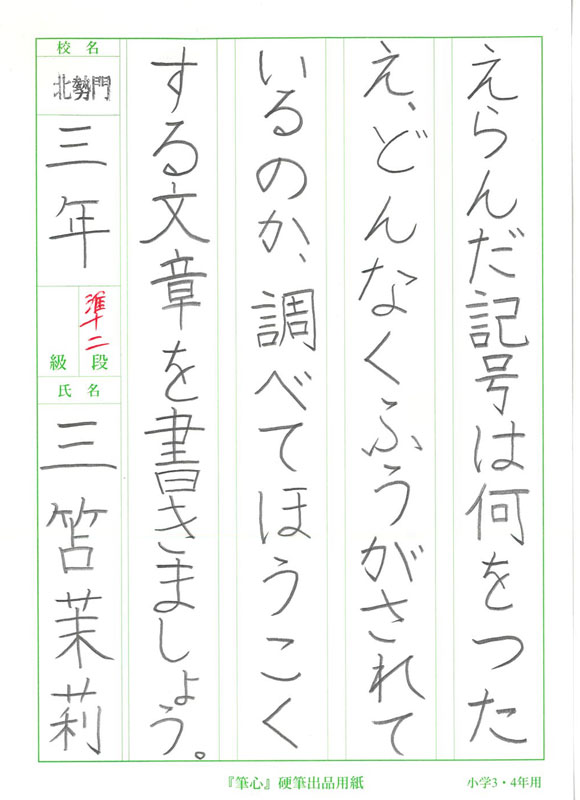 えらんだ記号は何をつた
え、どんなくふうがされて
いるのか、調べてほうこく
する文章を書きましょう。
校名
北勢門
三年
準十二
級段
氏名
三笘茉莉
『筆心』硬筆出品用紙
小学3・4年用